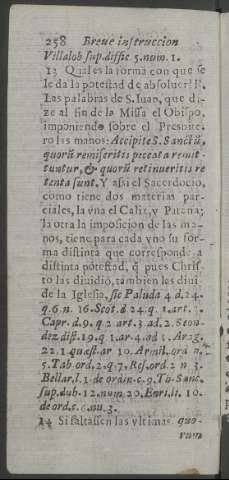 258 Breue instruccion
Villalob sup. diffic. 5. num. 1.
13 Qual es la forma con que se
le da la potestad de absoluer? R.
Las palabras de S. Iuan, que di-
ze al fin de la Missa el Obispo,
imponiendo sobre el Presbite-
ro las manos: Accipite S. Sanctũ,
quorũ remiseritis peccata remit-
tuntur, & quorũ retinueritis re
tenta sunt. Y assi el Sacerdocio,
como tiene dos materias par-
ciales, la vna el Caliz, y Patena;
la otra la imposicion de las ma-
nos, tiene para cada vno su for-
ma distinta que corresponde a
distinta potestad, q̃ pues Chris-
to las diuidiò, tambien les diui-
de la Iglesia, sic Paluda 4. d. 24.
q. 6. n. 16. Scot. d 24. q. 1. art. 
Capr. d. 9. q 2 art. 3. ad. 2.
dez dist. 19. q 1. ar. 4. ad Arag.
22. 1. quæst. ar 10. Armil. ord n.
5. Tab ord. 2. q. 7. Ros. ord. 2 n 3.
Bellar. l. 1 de ordin. c. 9. To Sanc.
sup. dub. 12. num 20. Enri. li. 10.
de ord. c. 6. nu. 3.
14 Si faltassen las vltimas quo-
rum